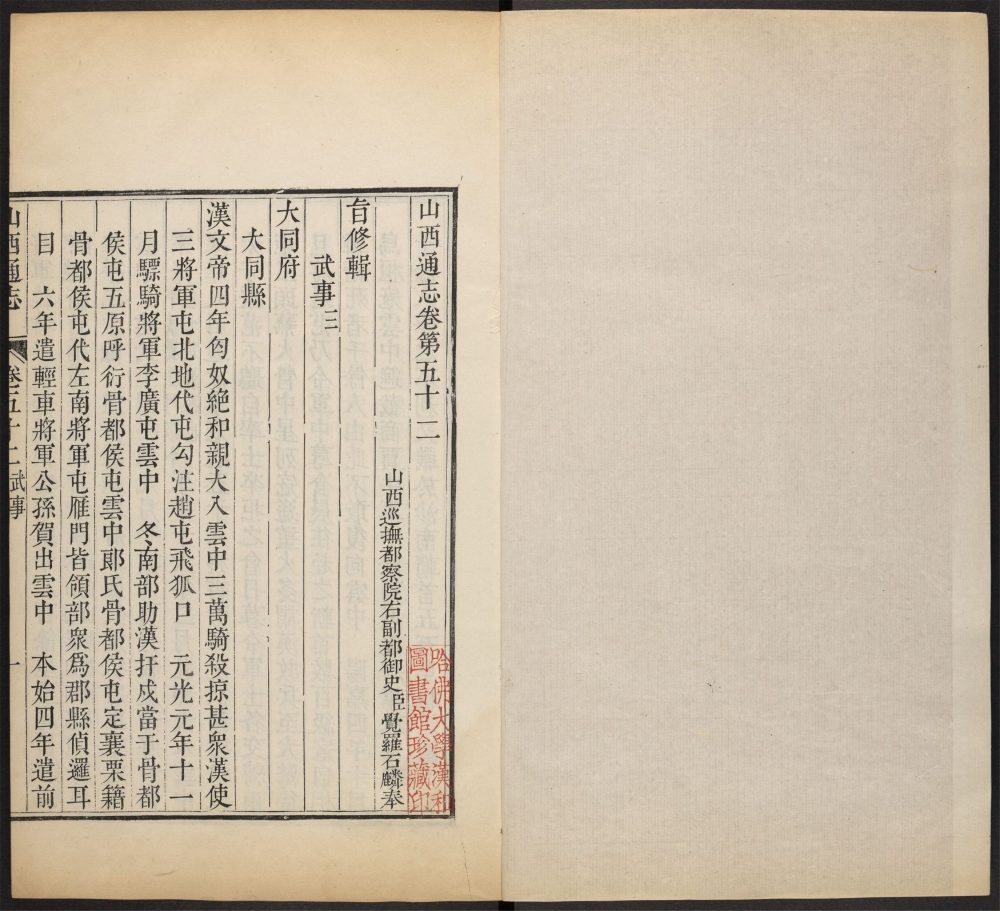 山西通志卷第五十二
山西巡撫都察院右副都御史臣覺羅石麟奉
旨修輯
武事三
大同府
大同縣
漢文帝四年匈奴絶和親大入雲中三萬騎殺掠甚衆漢使
三將軍屯北地代屯勾注趙屯飛狐口　元光元年十一
月驃騎將軍李廣屯雲中　冬南部助漢扞戍當于骨都
侯屯五原呼衍骨都侯屯雲中郎氏骨都侯屯定襄栗籍
骨都侯屯代左南將軍屯雁門皆領部衆爲郡縣偵邏耳
目　六年遣輕車將軍公孫賀出雲中　本始四年遣前
山西通志　卷五十二　武事　一
哈佛大學漢和
圖書館珍藏印